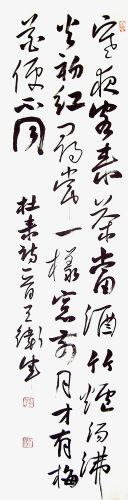 寒夜客来茶当酒竹炉汤沸
火初红寻常一样窗前月才有梅
花便不同
杜耒诗一首